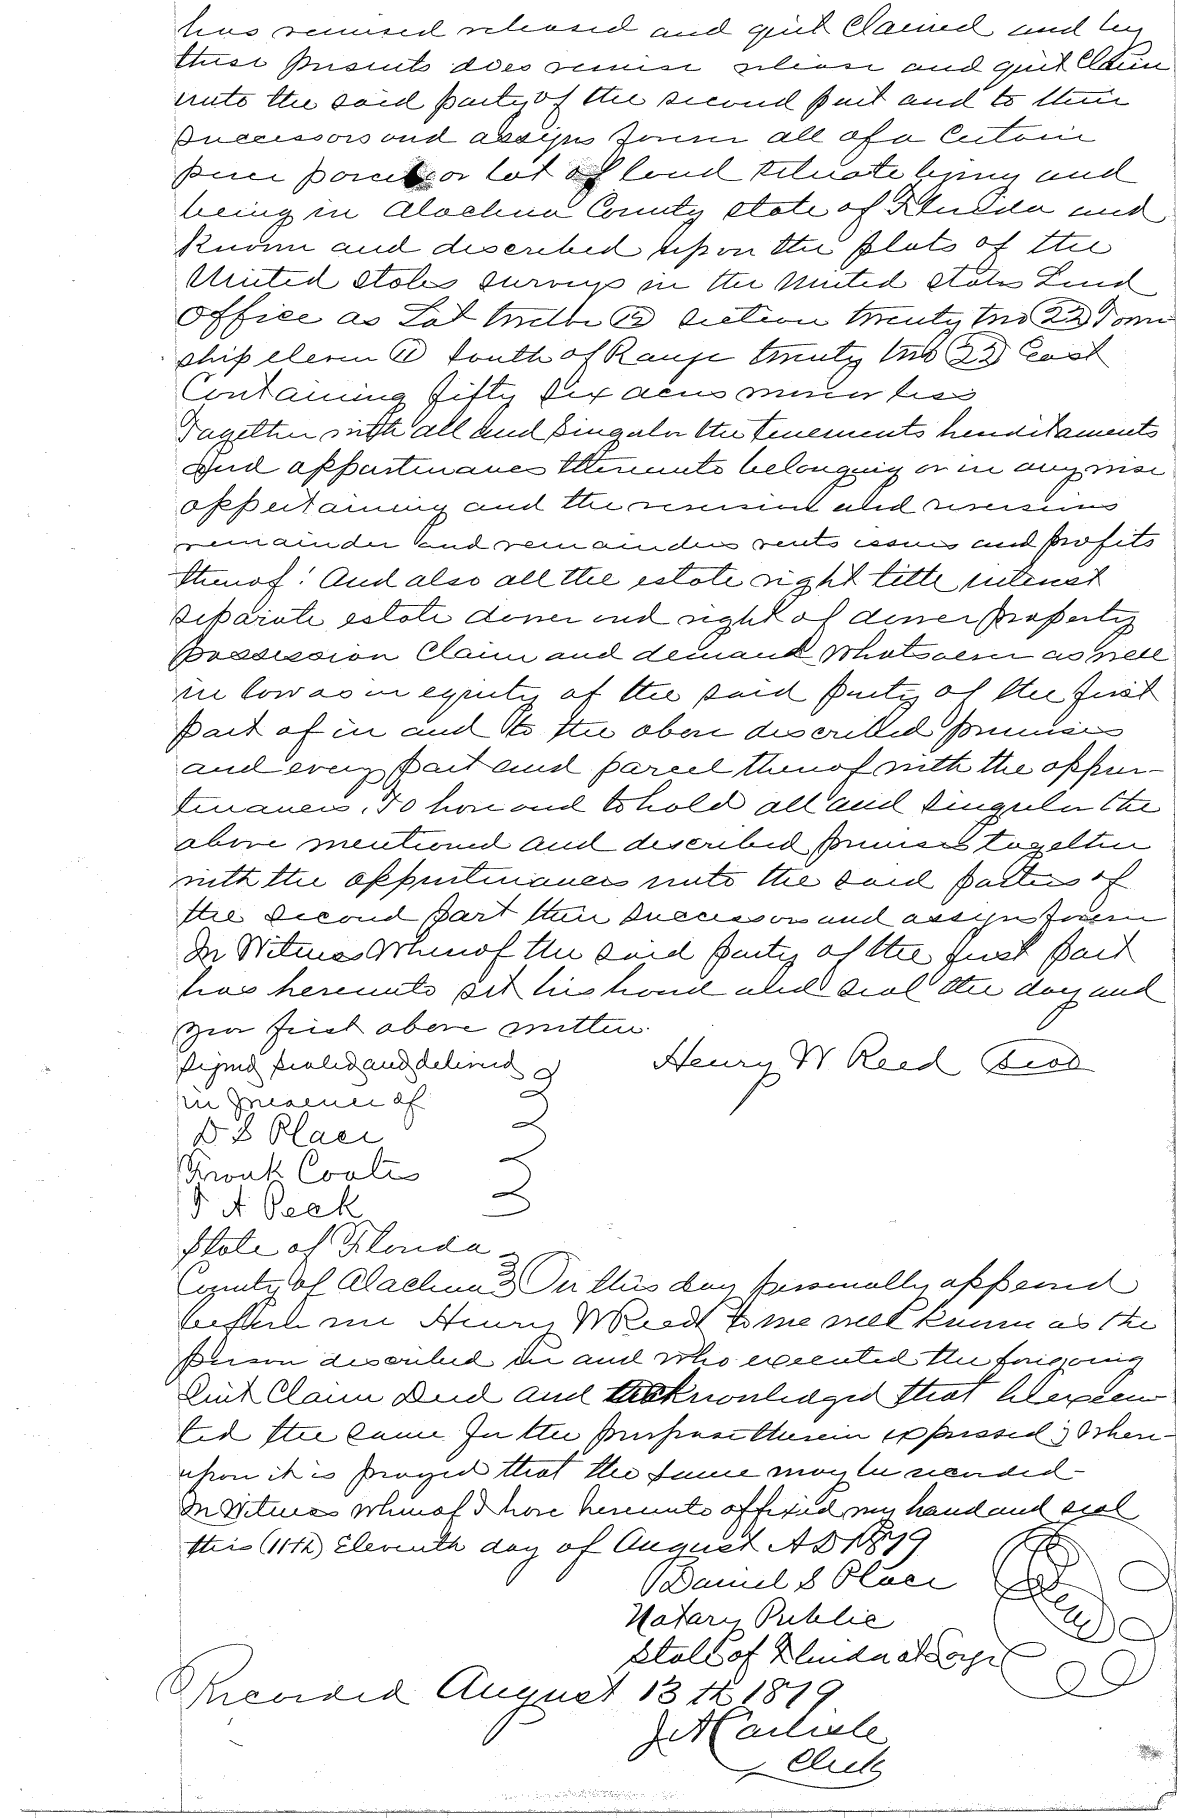 has remised released and quit Claimed and by
these presents does remise release and quit Claim
unto the said party of the second part and to their
successors and assigns forever all of a Certain
piece parcel or lot of land situate lying and
being in Alachua County state of Florida and
Known and described upon the plats of the
United states surveys in the United states Land
Office as Lot twelve (12) section twenty two (22) Town
ship eleven (11) south of Range twenty two (22) East
Containing fifty six acres more or less
Together with all and singular the tenements hereditaments
and appurtenances thereunto belonging or in any wise
appertaining and the reversion and reversions
remainder and remainders rents issues and profits
thereof: And also all the estate right title interest
separate estate dower and right of dower property
possession Claim and demand whatsoever as well
in law as in equity of the said party of the first
part of in and to the above described premises
and every part and parcel thereof with the appur-
tenances. To have and to hold all and singular the
above mentioned and described premises together
with the appurtenances unto the said parties of
the second part their successors and assigns forever
In Witness Whereof the said party of the first part
has hereunto set his hand and seal the day and
year first above written.
signed sealed and delivered Henry W Reed Seal
in presence of
D S Place
Frank Coates
T A Peck
State of Florida
County of Alachua On this day personally appeared
before me Henry W Reed to me well known as the
person described in and who executed the foregoing
Quit Claim Deed and acknowledged that he execu-
ted the same for the purpose therein expressed; When-
upon it is prayed that the same may be recorded-
In Witness whereof I have hereunto affixed my hand and seal
this (11th) Eleventh day of August AD 1879
Daniel S Place Seal
Notary Public
State of Florida at Large
Recorded August 13th 1879
J A Carlisle
Clerk